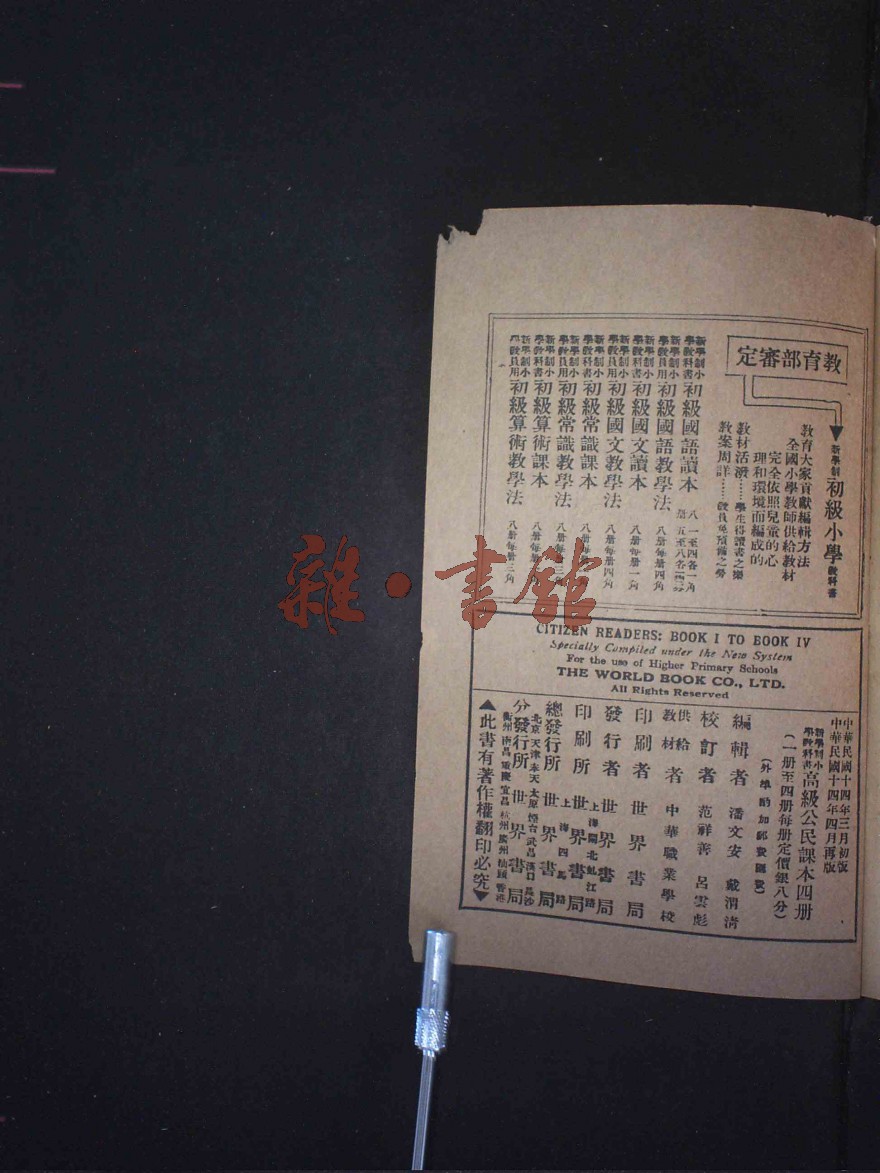 教育部審定
新學制初級小學教科書
教育大家貢獻編輯方法
全國小學教師供給教材
完全依照兒童的心
理和環境而編成的
教材活潑……學生得讀書之樂
教案周詳……教員免預備之勞
新學制小學教科書初級國語讀本 八册 一至四各一角 五至八各一角二分
新學制小學教員用初級國語教學法 八册每册四角
新學制小學教科書初級國文讀本 八册每册一角
新學制小學教員用初級國文教學法 八册每册四角
新學制小學教科書初級常識課本 八册每册
新學制小學教員用初級常識教學法 八册每册
新學制小學教科書初級算術課本 八册每册
新學制小學教員用初級算術教學法 八册每册三角
CITIZEN READERS: BOOK I TO BOOK IV
Specially Compiled under the New System
For the use of Higher Primary Schools
THE WORLD BOOK CO., LTD.
All Rights Reserved
中華民國十四年三月初版
中華民國十四年四月再版
新學制小學教科書高級公民課本四册
（一册至四册每册定價銀八分）
（外埠酌加郵費匯費）
編輯者 潘文安 戴渭清
校訂者 范祥善 呂雲彪
供給教材者 中華職業學校
印刷者 世界書局
發行者 世界書局
印刷所 上海閘北虬江路 世界書局
總發行所 上海四馬路 世界書局
分發行所 世界書局
北京 天津 奉天 太原 煙台 武昌 漢口 長沙
衡州 南昌 重慶 宜昌 杭州 廣州 汕頭 香港
▲此書有著作權翻印必究▼
雜·書館